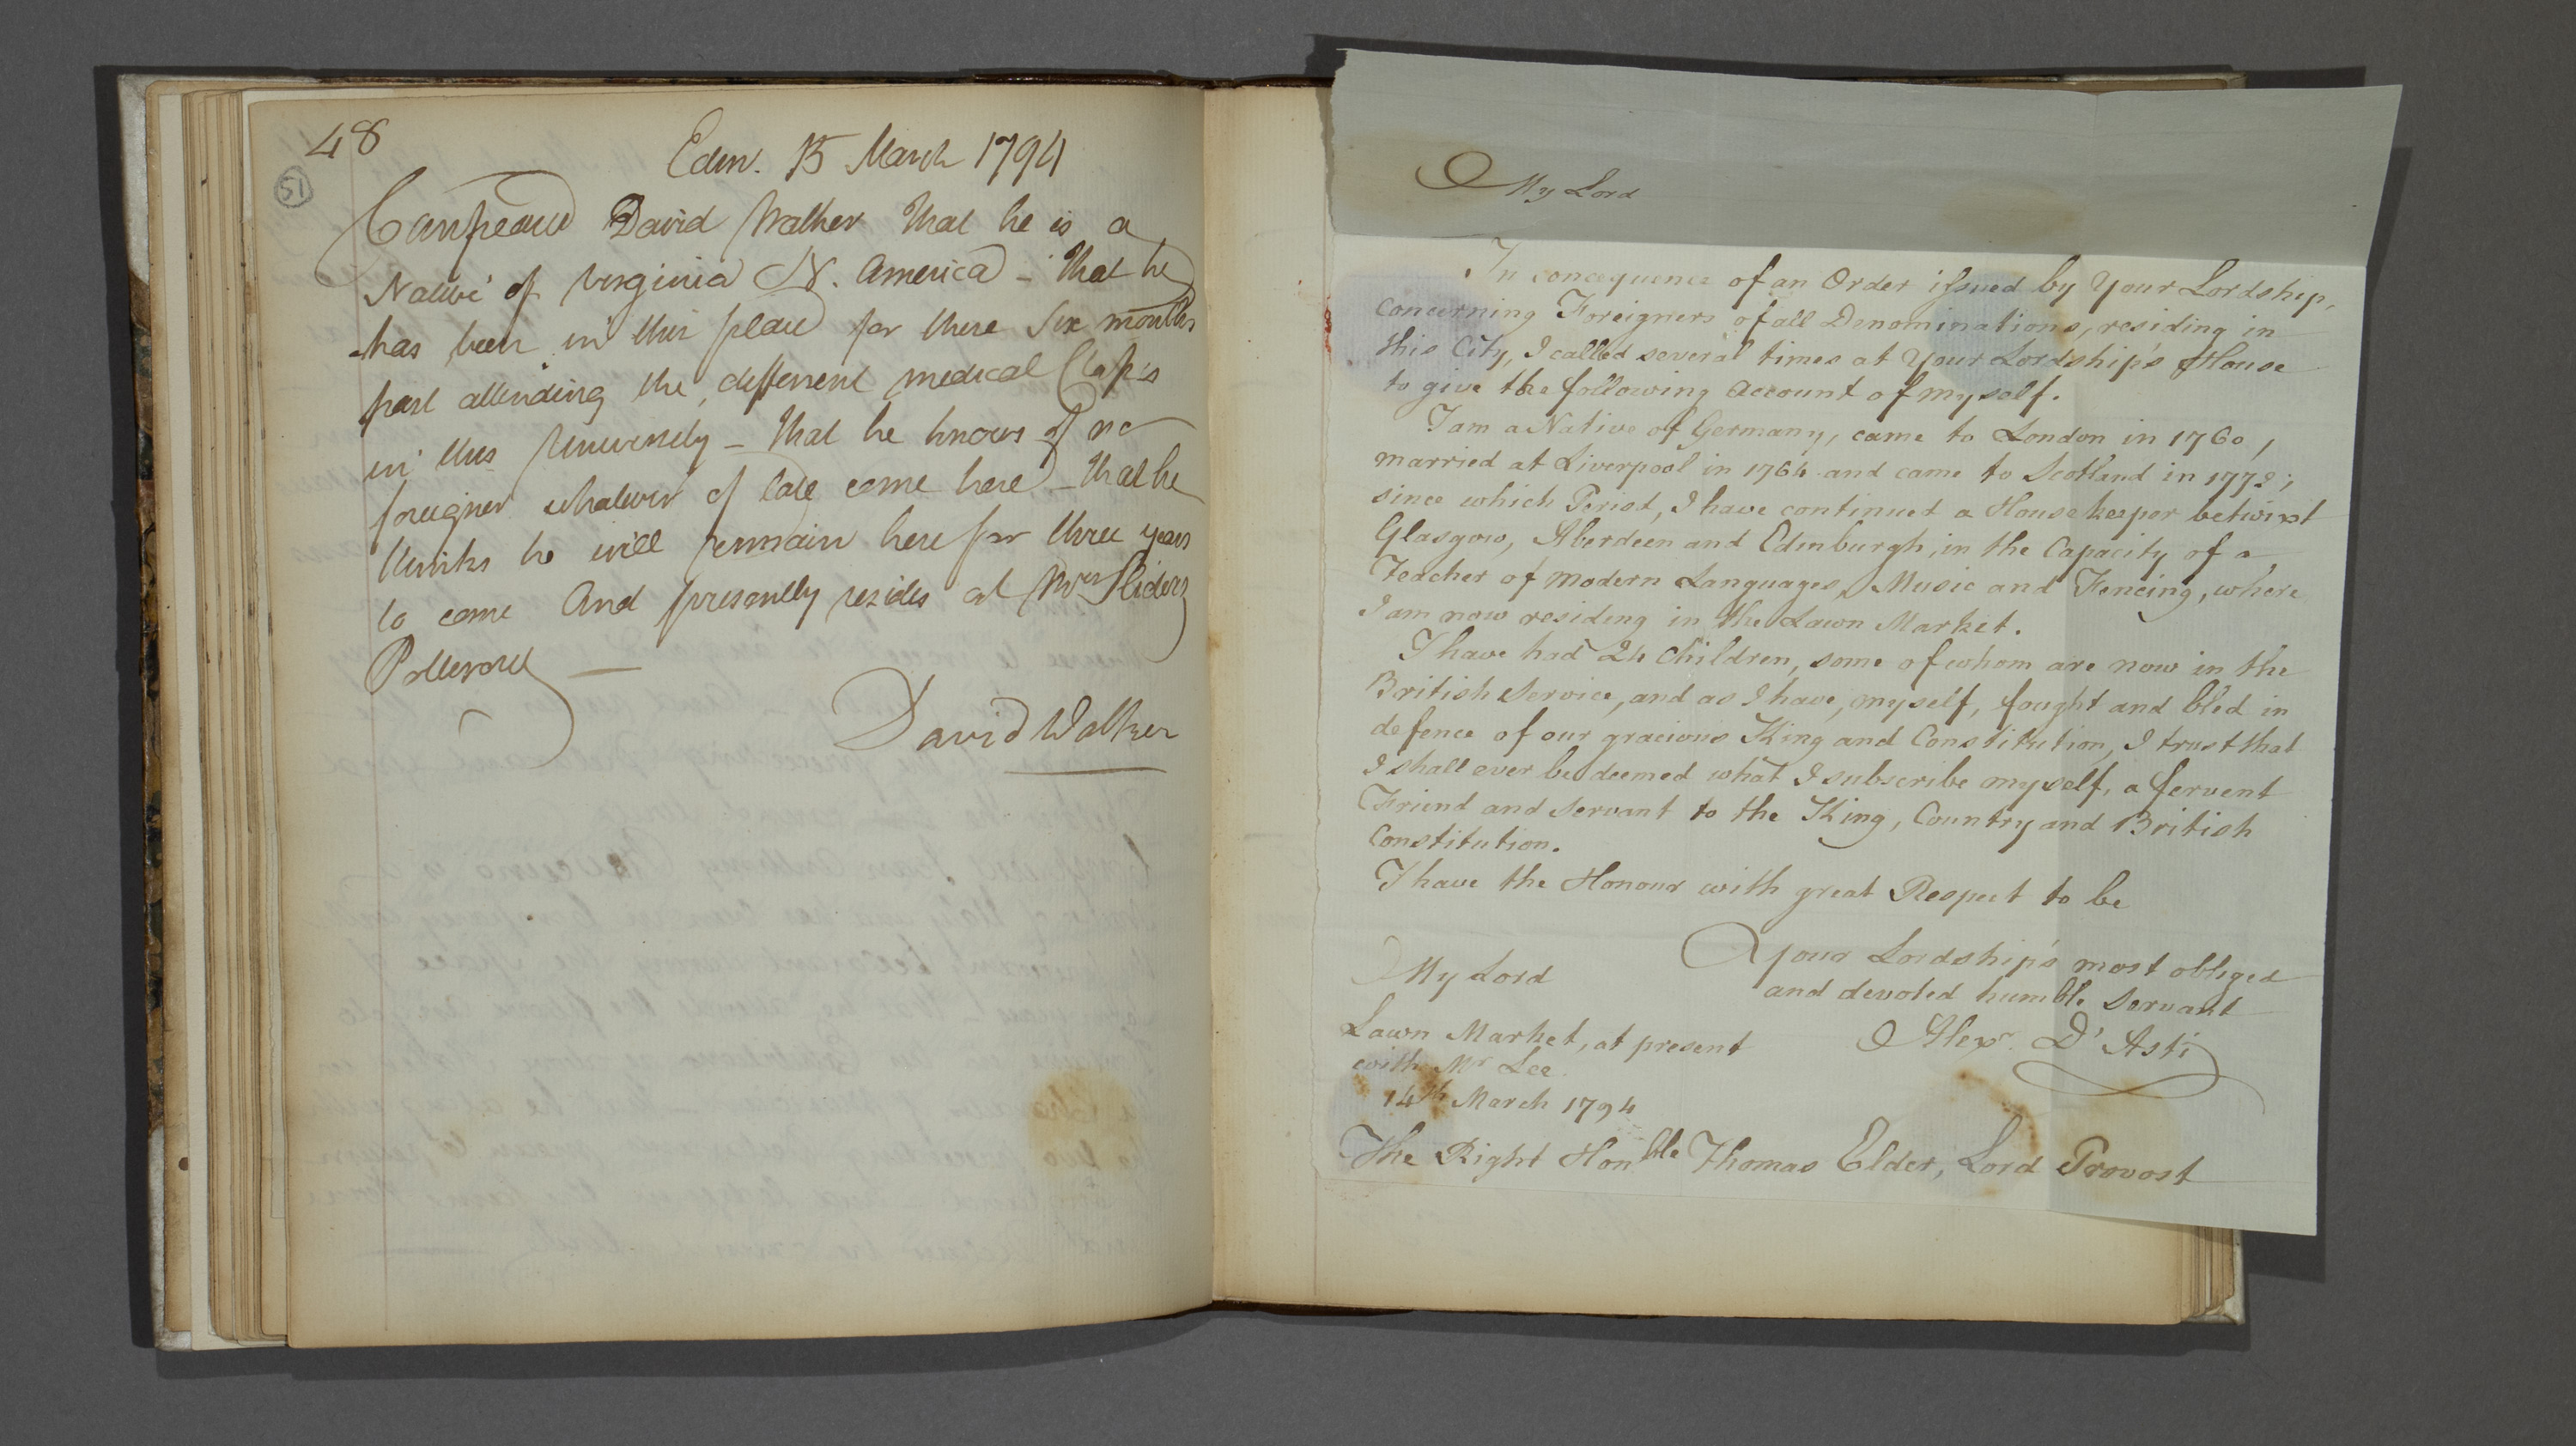 48
51
Edin. 15 March 1794
Compeared David Walker that he is a
Native of Virginia N. America - that he
has been in this place for these Six months
past attending the different medical Class's
in this University - that he knows of no
foreigner whatever of late come here - that he
thinks he will remain here for three years
to come And presently resides at Mrs Riders
Potterrow
David Walker
My Lord
In consequence of an Order issued by Your Lordship,
concerning Foreigners of all Denominations, residing in
this City, I called several times at Your Lordship's House
to give the following Account of myself.
I am a Native of Germany, came to London in 1760,
married at Liverpool in 1764 and came to Scotland in 1772;
since which Period, I have continued a Housekeeper betwixt
Glasgow, Aberdeen and Edinburgh, in the Capacity of a
Teacher of Modern Languages, Music and Fencing, where
I am now residing in the Lawn Market.
I have had 24 Children, some of whom are now in the
British Service, and as I have, myself, fought and bled in
defence of our gracious King and Constitution, I trust that
I shall ever be deemed what I subscribe myself, a fervent
Friend and Servant to the King, Country and British
Constitution.
I have the Honour with great Respect to be
My Lord
Your Lordship's most obliged
and devoted humble Servant
Alexr. D'Asti
Lawn Market, at present
with Mr Lee.
14th March 1794
The Right Honble Thomas Elder, Lord Provost